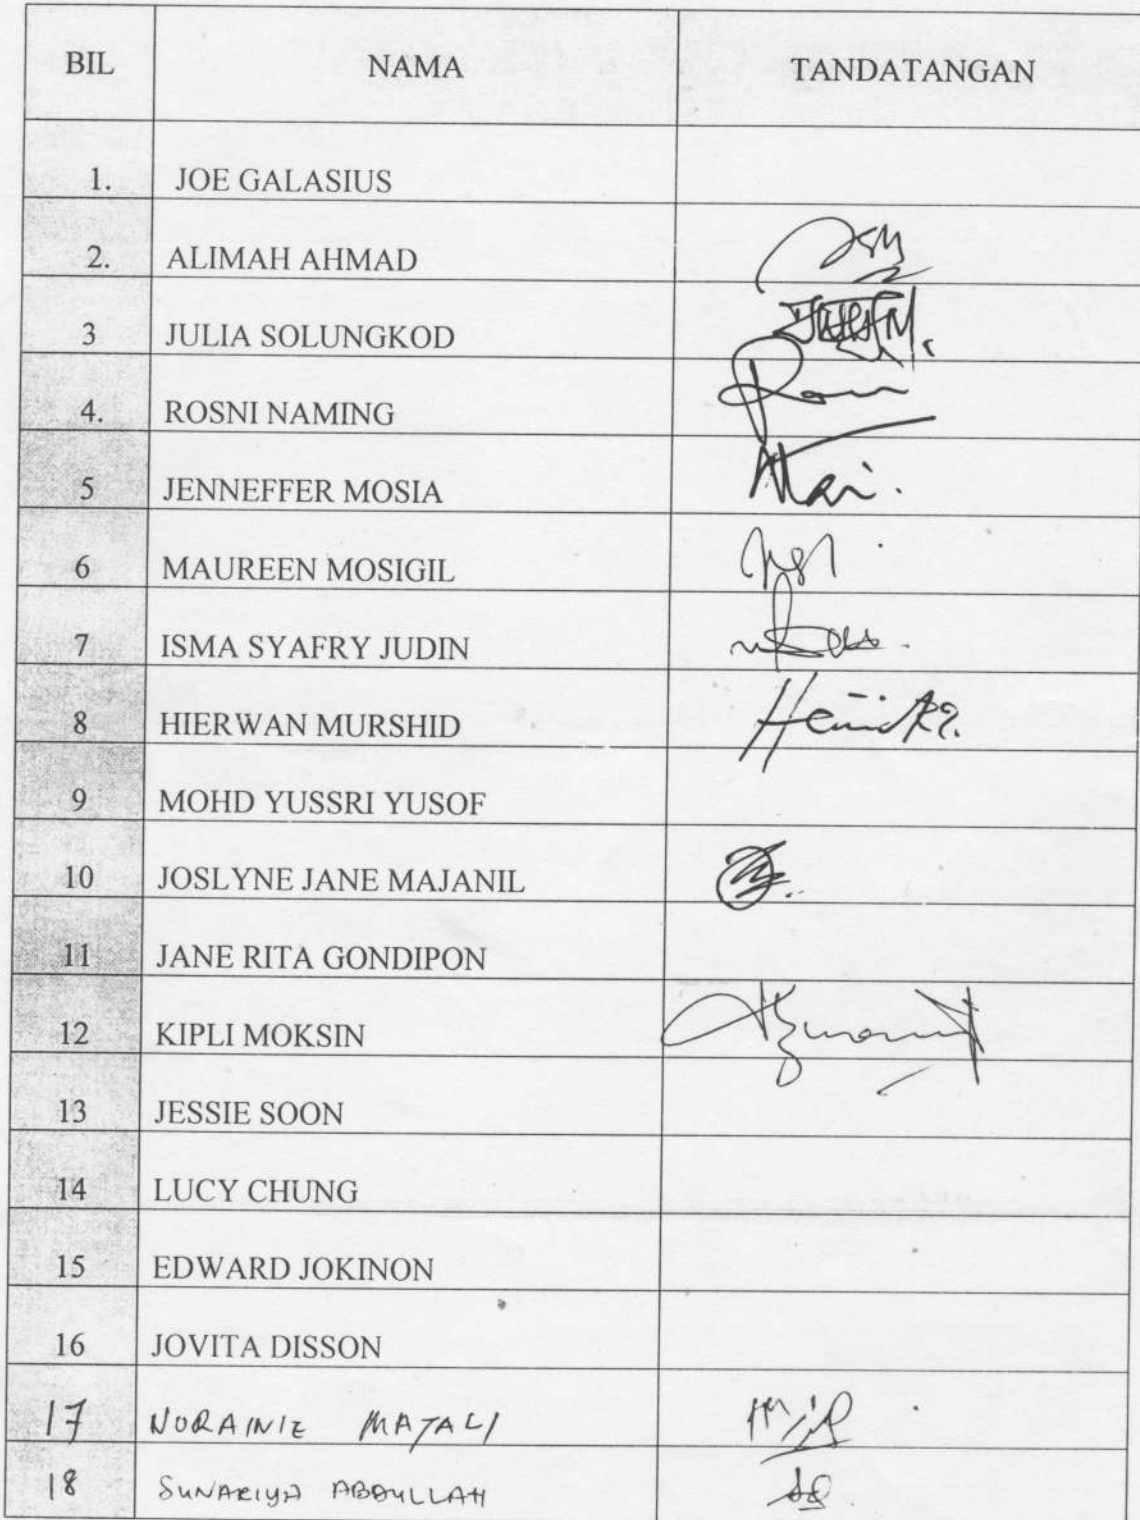 BIL NAMA TANDATANGAN
1. JOE GALASIUS
2. ALIMAH AHMAD
3 JULIA SOLUNGKOD
4. ROSNI NAMING
5 JENNEFFER MOSIA
6 MAUREEN MOSIGIL
7 ISMA SYAFRY JUDIN
8 HIERWAN MURSHID
9 MOHD YUSSRI YUSOF
10 JOSLYNE JANE MAJANIL
11 JANE RITA GONDIPON
12 KIPLI MOKSIN
13 JESSIE SOON
14 LUCY CHUNG
15 EDWARD JOKINON
16 JOVITA DISSON
17 NORAINIE MATALI
18 SUNARIYA ABDULLAH